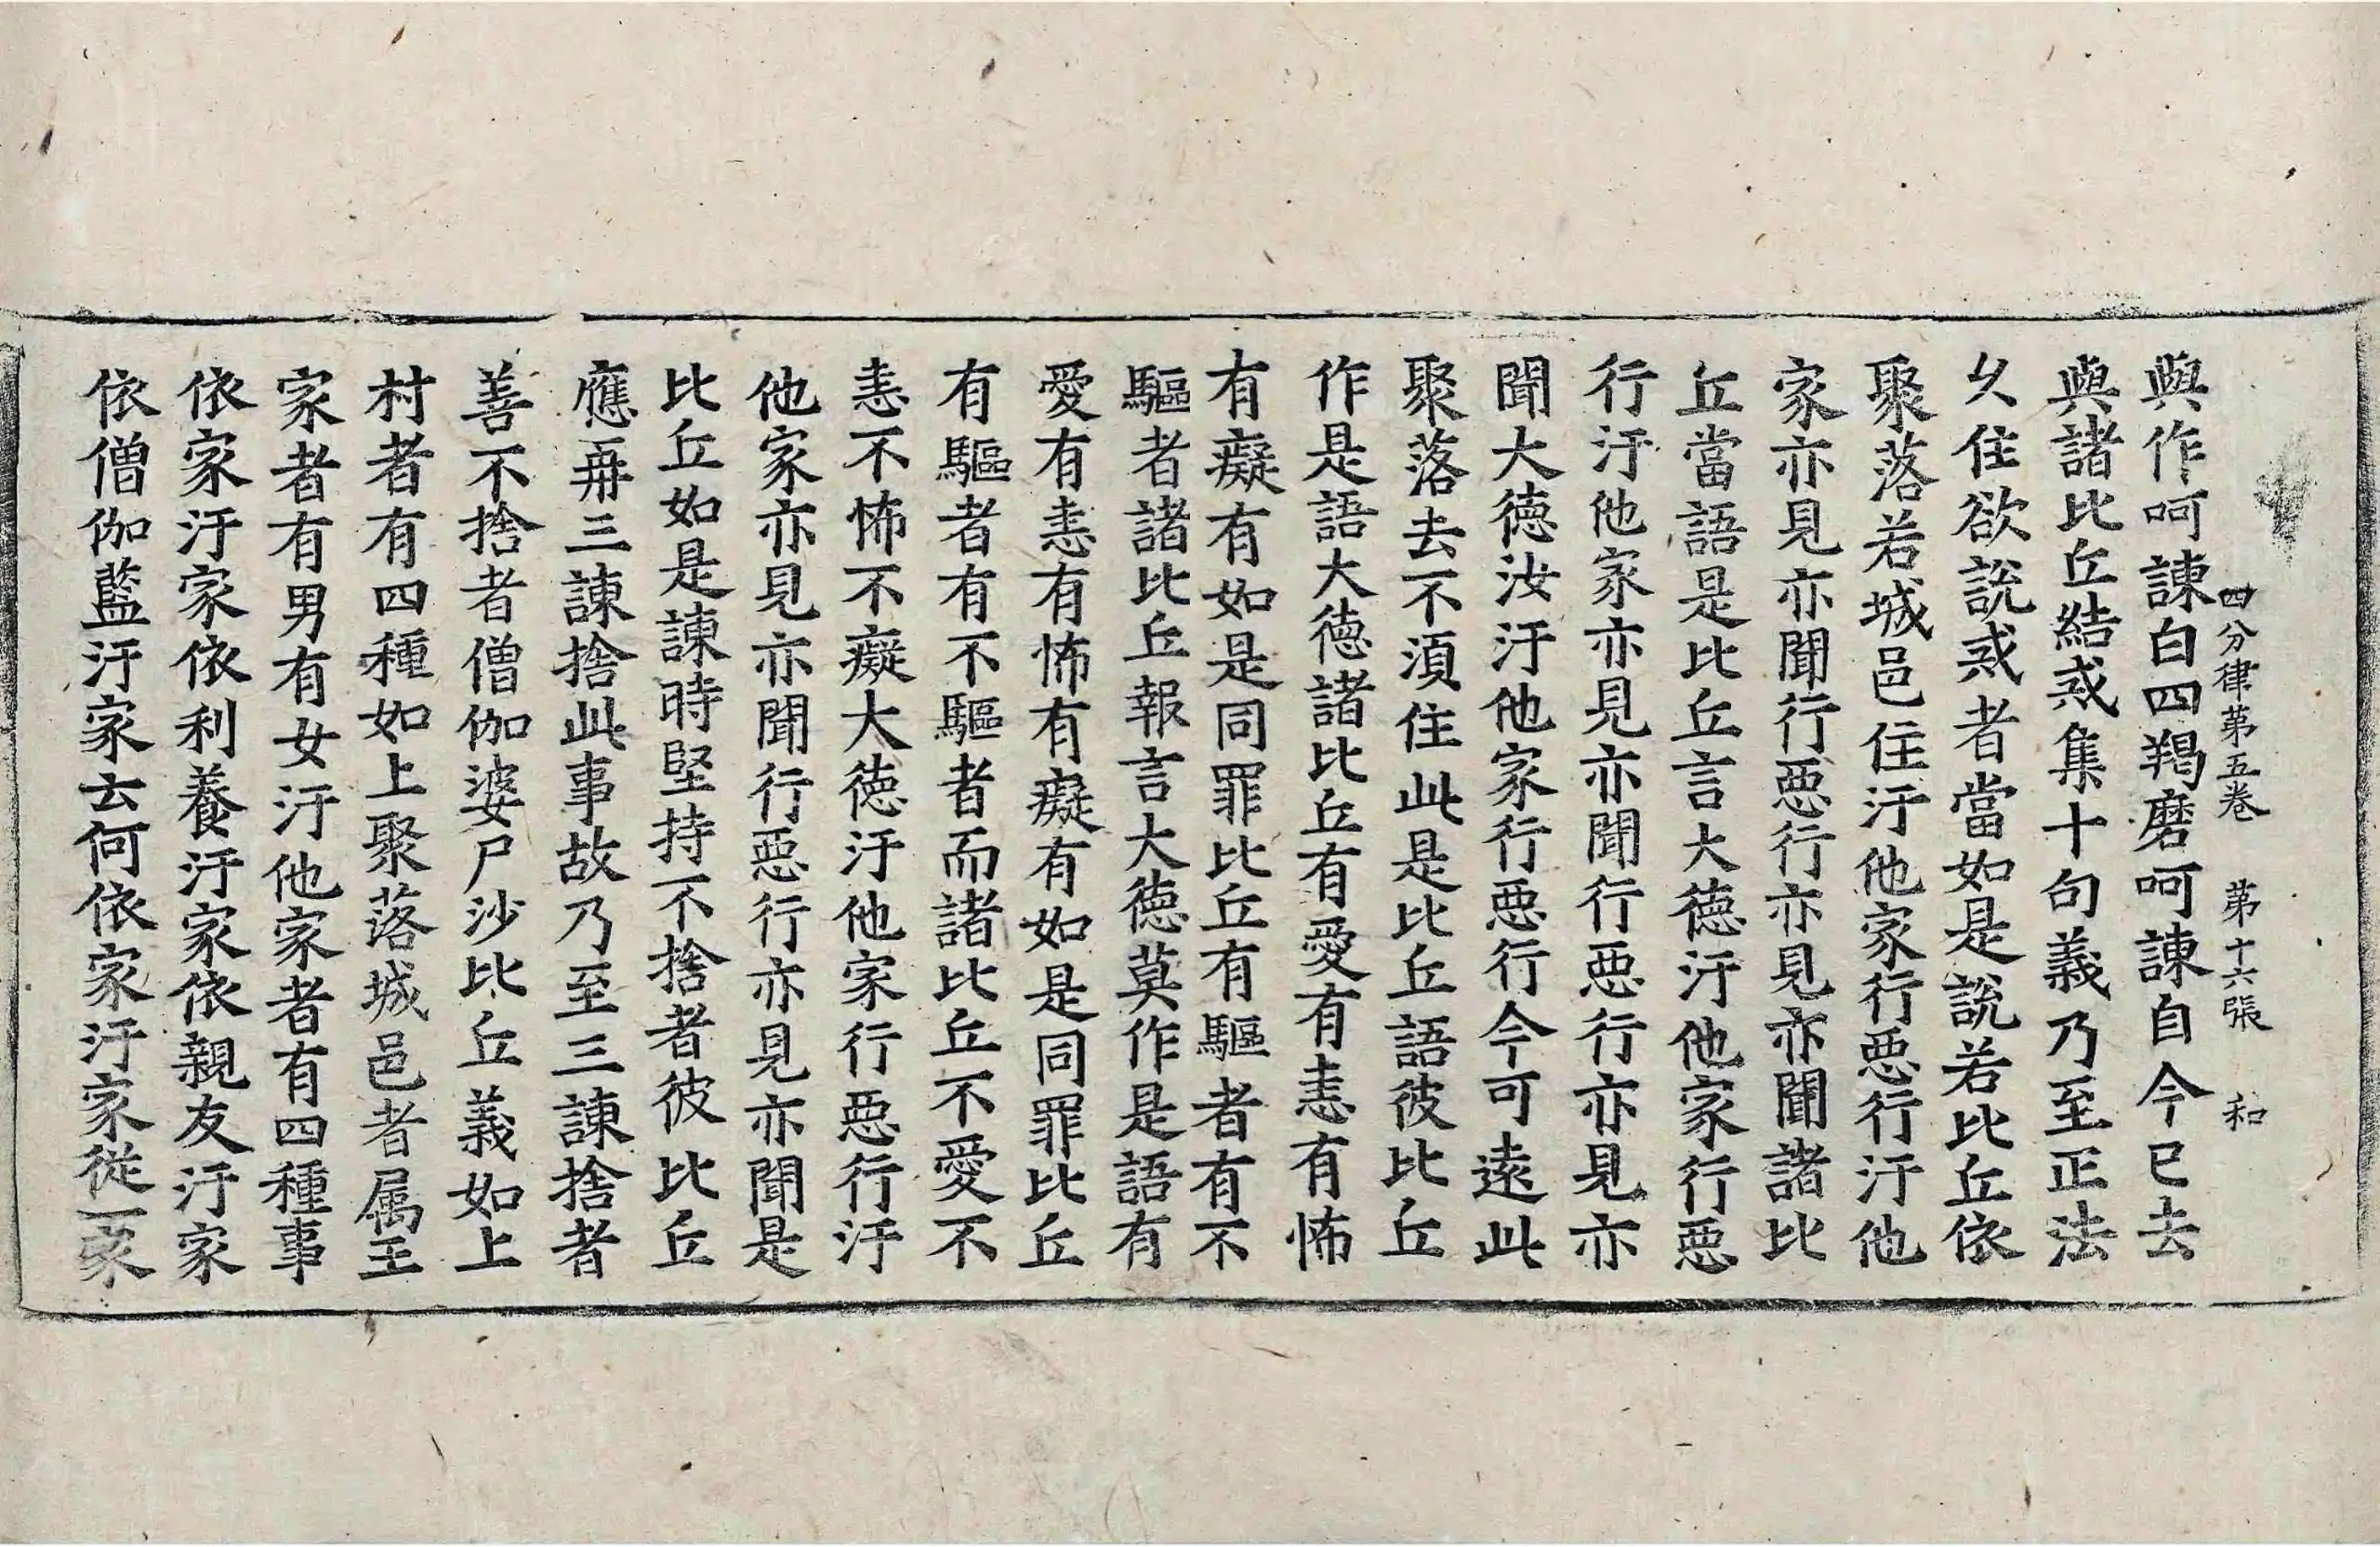 四分律第五卷 第十六張 和
與作呵諫白四羯磨呵諫自今已去
與諸比丘結戒集十句義乃至正法
久住欲說戒者當如是說若比丘依
聚落若城邑住汙他家行惡行汙他
家亦見亦聞行惡行亦見亦聞諸比
丘當語是比丘言大德汙他家行惡
行汙他家亦見亦聞行惡行亦見亦
聞大德汝汙他家行惡行今可遠此
聚落去不須住此是比丘語彼比丘
作是語大德諸比丘有愛有恚有怖
有癡有如是同罪比丘有驅者有不
驅者諸比丘報言大德莫作是語有
愛有恚有怖有癡有如是同罪比丘
有驅者有不驅者而諸比丘不愛不
恚不怖不癡大德汙他家行惡行汙
他家亦見亦聞行惡行亦見亦聞是
比丘如是諫時堅持不捨者彼比丘
應再三諫捨此事故乃至三諫捨者
善不捨者僧伽婆尸沙比丘義如上
村者有四種如上聚落城邑者属王
家者有男有女汙他家者有四種事
依家汙家依利養汙家依親友汙家
依僧伽藍汙家云何依家汙家從一家